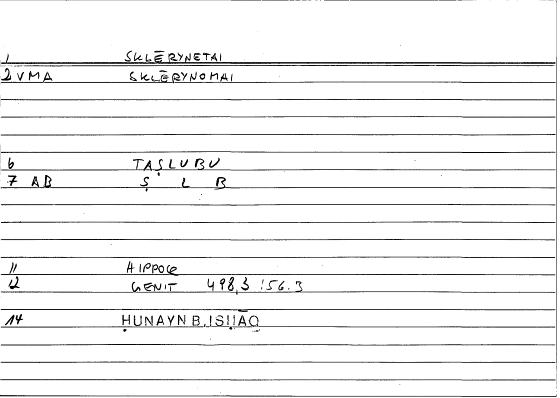 1 SKLĒRYNETAI
2 VMA SKLĒRYNOMAI
6 TAṢLUBU
7 AB Ṣ L B
11 HIPPOC
12 GENIT 498,3 : 56.3
14 ḤUNAYN B. ISḤĀQ